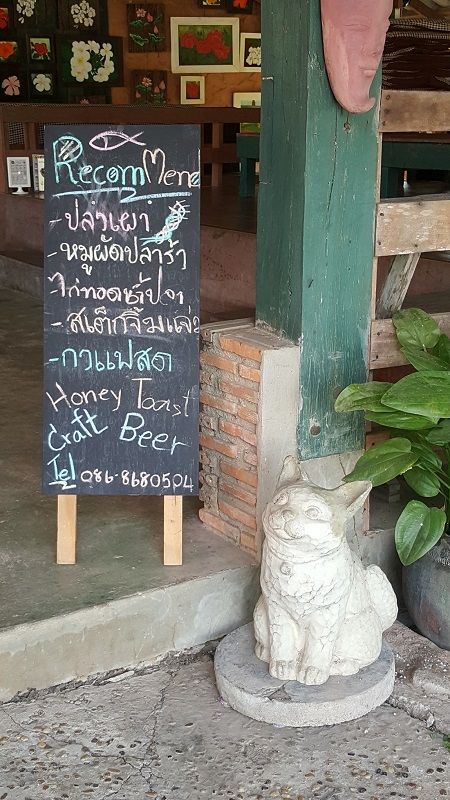 RecomMend
- ปลาเผา
- หมูผัดปลาร้า
ไก่ทอดน้ำปลา
- สเต็กจิ้มแจ่ว
- กาแฟสด
Honey Toast
Craft Beer
Tel 086-8680504